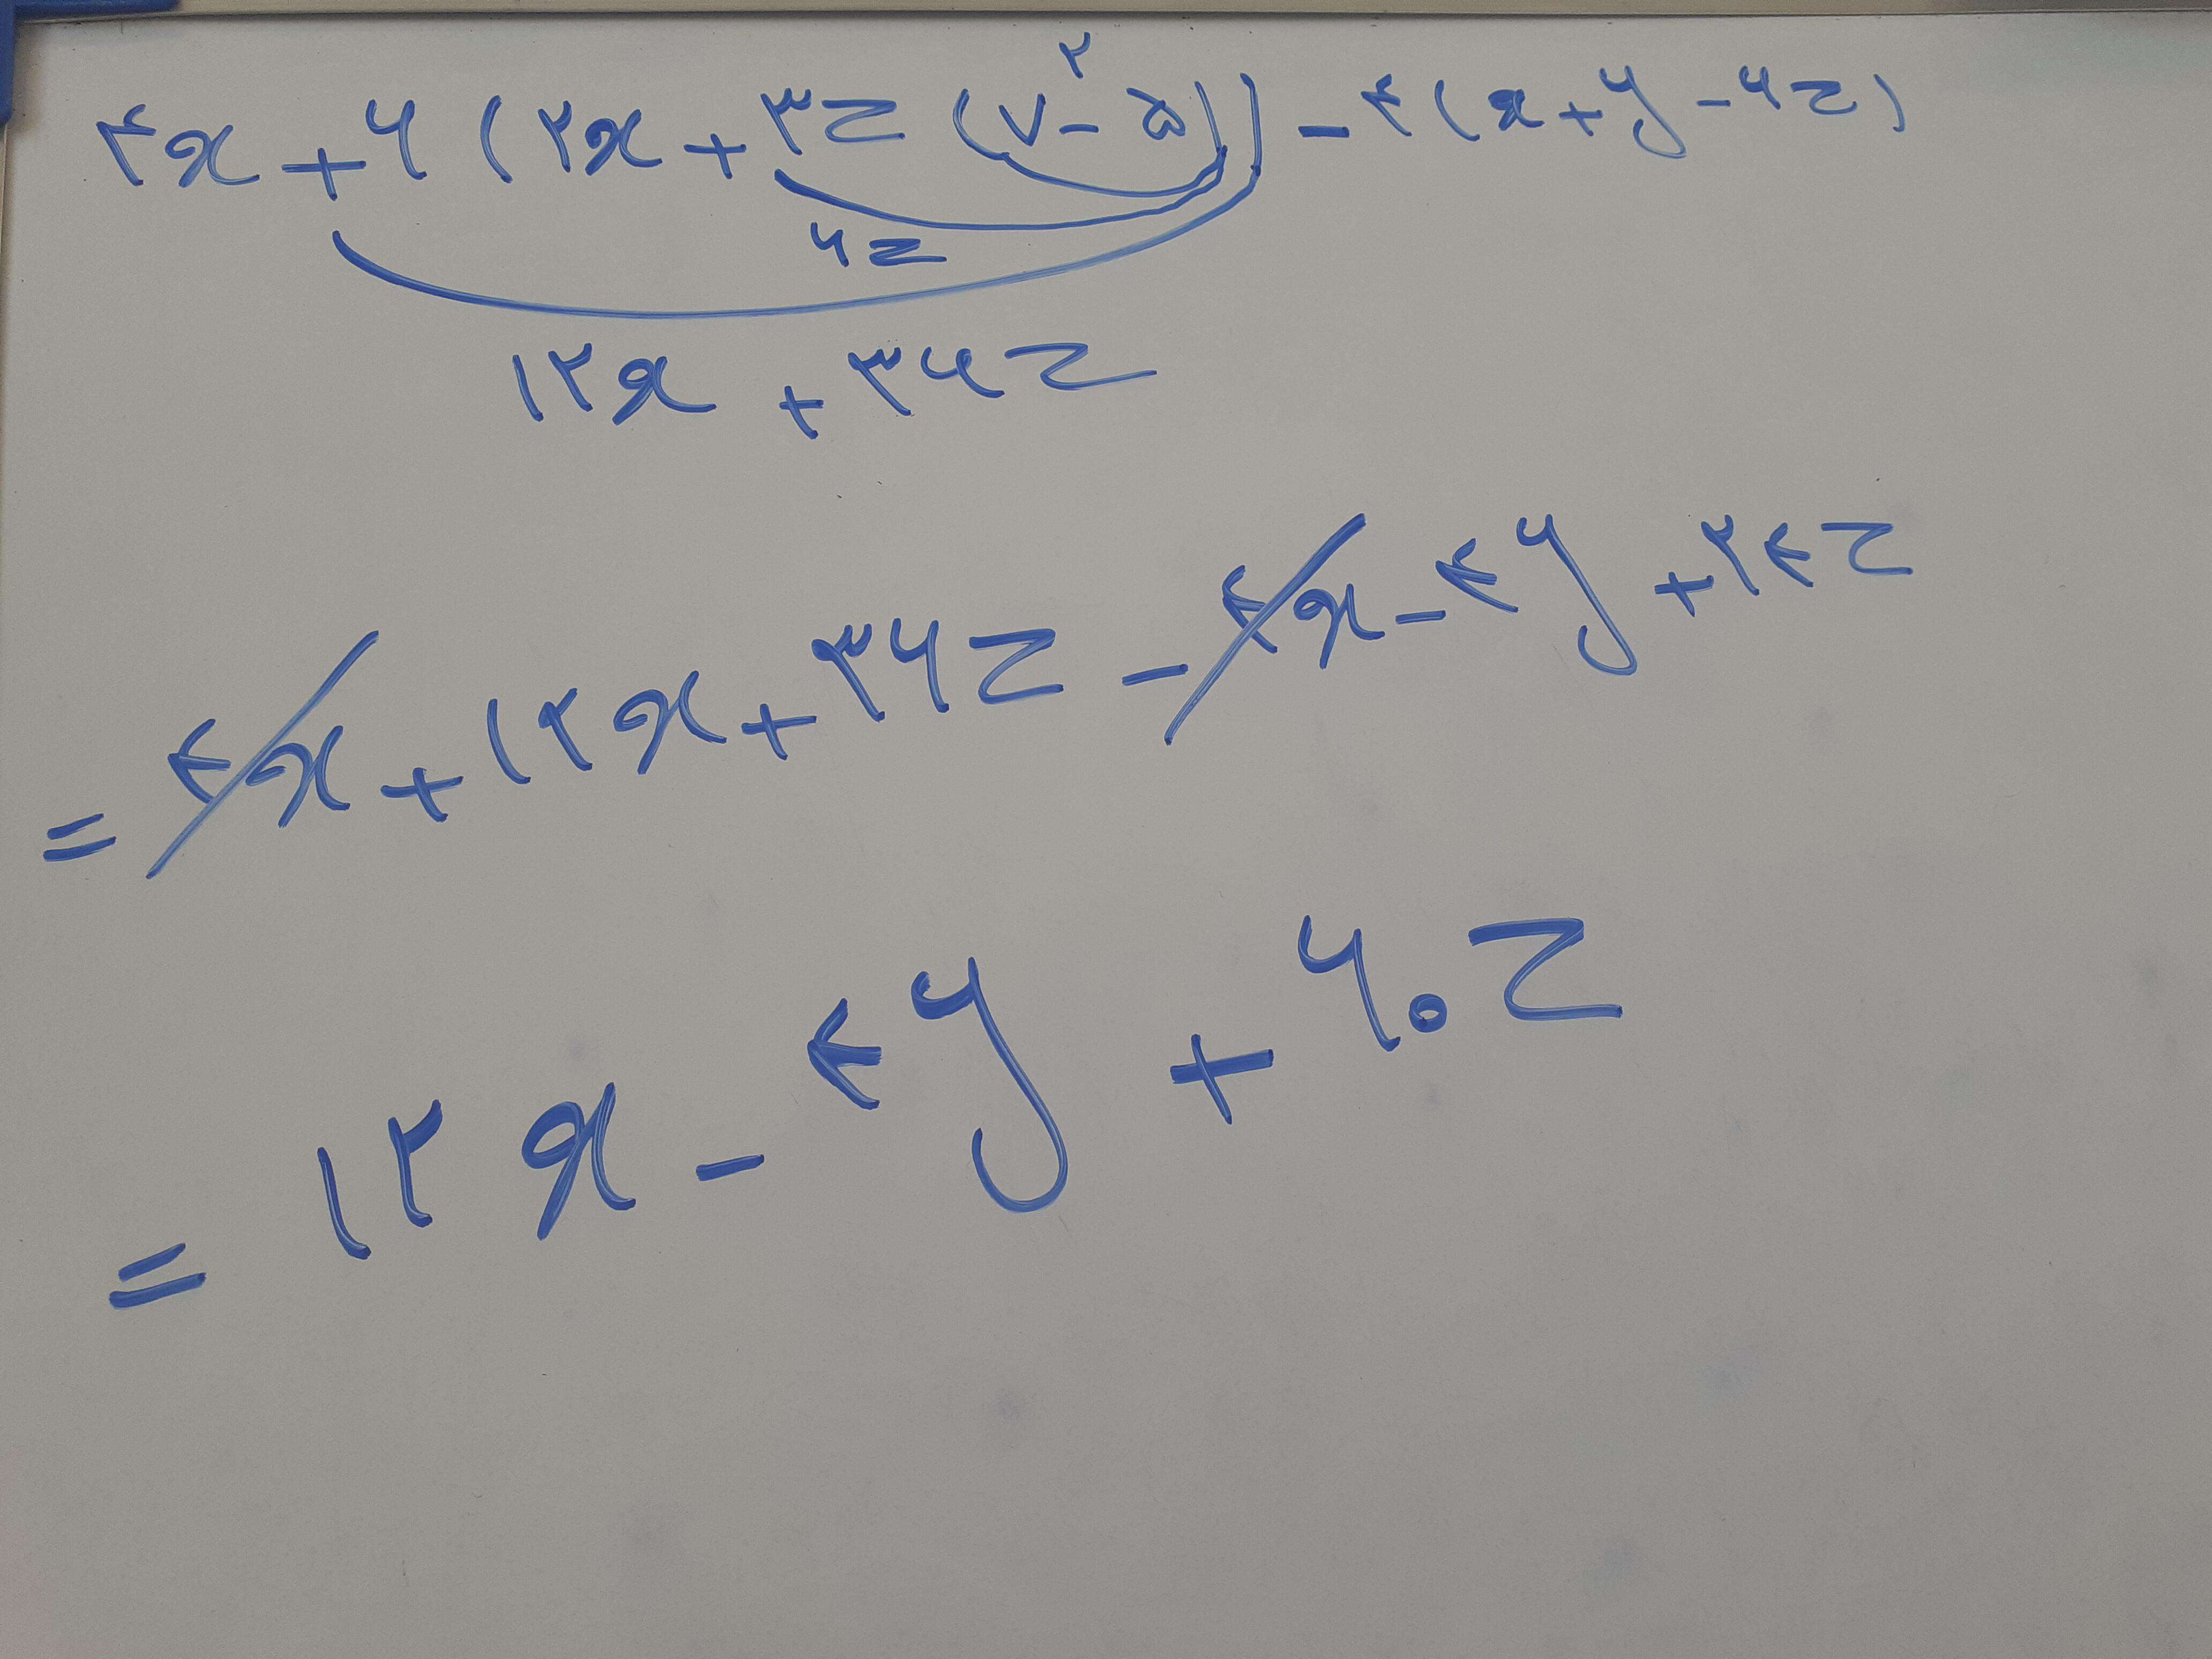 ۲
۴x + ۶ (۲x + ۳z (۷ - ۵)) - ۴ (x + y - ۶z)
۶z
۱۲x + ۳۶z
= ۴x + ۱۲x + ۳۶z - ۴x - ۴y + ۲۴z
= ۱۲x - ۴y + ۶۰z